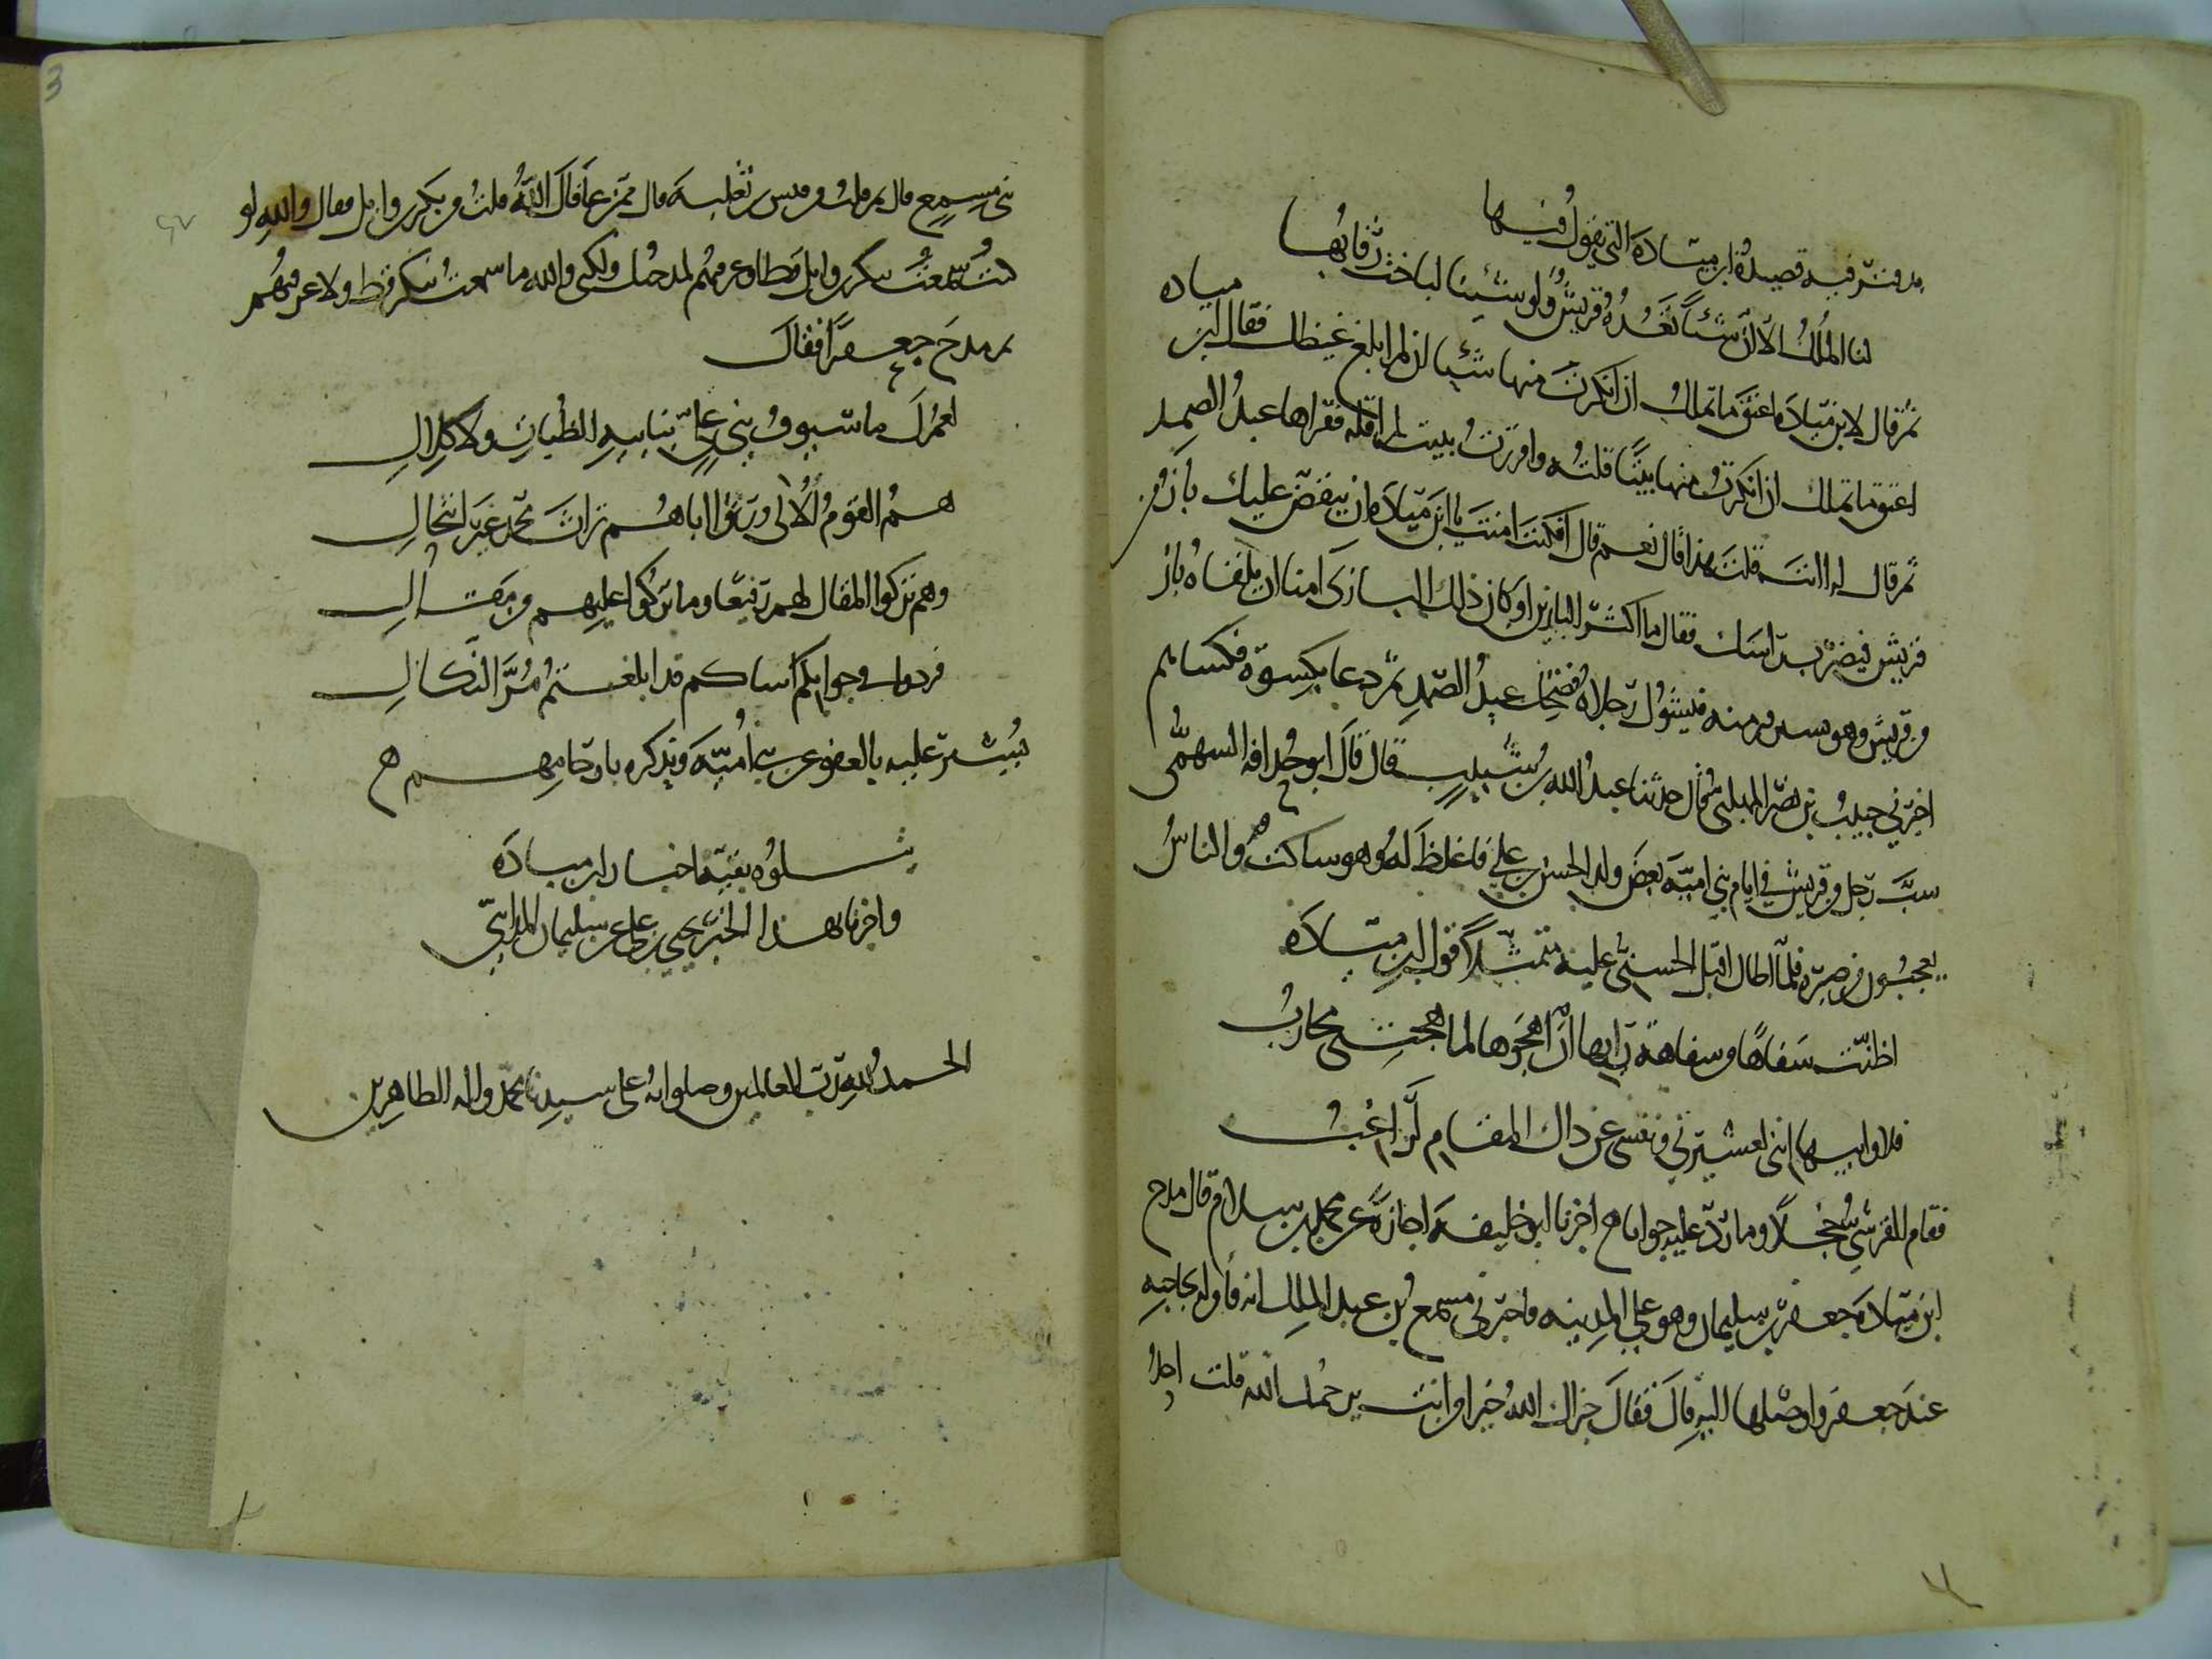 مدفتر فيه قصيدة ابن ميادة التي يقول فيها
لنا الملك الا ان شيئا تعده قريش ولو شئنا لباخت رقابها
ثم قال لابن ميادة فاعتق ما تملك ان انكرت منها شيئا ان لم ابلغ غيظك فقال ابن ميادة
اعتق ما تملك ان انكرت منها بيتا قلته واقررت ببيت لم اقله فقراها عبد الصمد
ثم قال له اانت قلت هذا قال نعم قال افكنت امنت يا ابن ميادة ان ينقض عليك باز من
قريش فيضرب راسك فقال ما اكثر البازين اوكان ذلك البازي امنا ان يلقاه باز
من قريش وهو يسير منه فيشول رجلاه فضحك عبد الصمد ثم دعا بكسوة فكساهم
اخبرني حبيب بن نصر المهلبي قال حدثنا عبد الله بن شبيب قال قال ابو حذافة السهمي
سب رجل من قريش في ايام بني امية بعض ولد الحسن بن علي فاغلظ له وهو ساكت والناس
يعجبون من صبره فلما اطال اقبل الحسني عليه متمثلا قول ابن ميادة
اظنت سفاها من سفاهة رايها ان اهجوها لما هجتني محارب
فلا وابيها انني لعشيرتي ونفسي عن ذاك المقام لراغب
فقام القرشي خجلا وما رد عليه جوابا ح اخبرنا ابو خليفة اجازة عن محمد بن سلام قال مدح
ابن ميادة جعفر بن سليمان وهو على المدينة فاخبرني مسمع بن عبد الملك انه قام له بحاجته
عند جعفر واوصلها اليه قال فقال جزاك الله خيرا من انت يرحمك الله قلت احد
بني مسمع قال ممن قلت من قيس بن ثعلبة قال ممن عافاك الله قلت من بكر بن وايل فقال والله لو
كنت سمعت ببكر بن وايل قط او عرفتهم لمدحتك ولكني والله ما سمعت ببكر قط ولا عرفتهم
ثم مدح جعفرا فقال
لعمرك ما سيوف بني علي بنابية الظبات ولا كلال
هم القوم الالى ورثوا اباهم تراث محمد غير انتحال
وهم تركوا المقال لهم رفيعا وما تركوا عليهم من مقال
فردوا في جوابكم اساكم قد ابلغتم مر النكال
يشير عليه بالعفو عن بني امية ويذكره بارحامهم ح
يتلوه بقية اخبار ابن ميادة
واخبرنا بهذا الخبر يحيى بن علي عن سليمان المدايني
الحمد لله رب العالمين وصلواته على سيدنا محمد واله الطاهرين